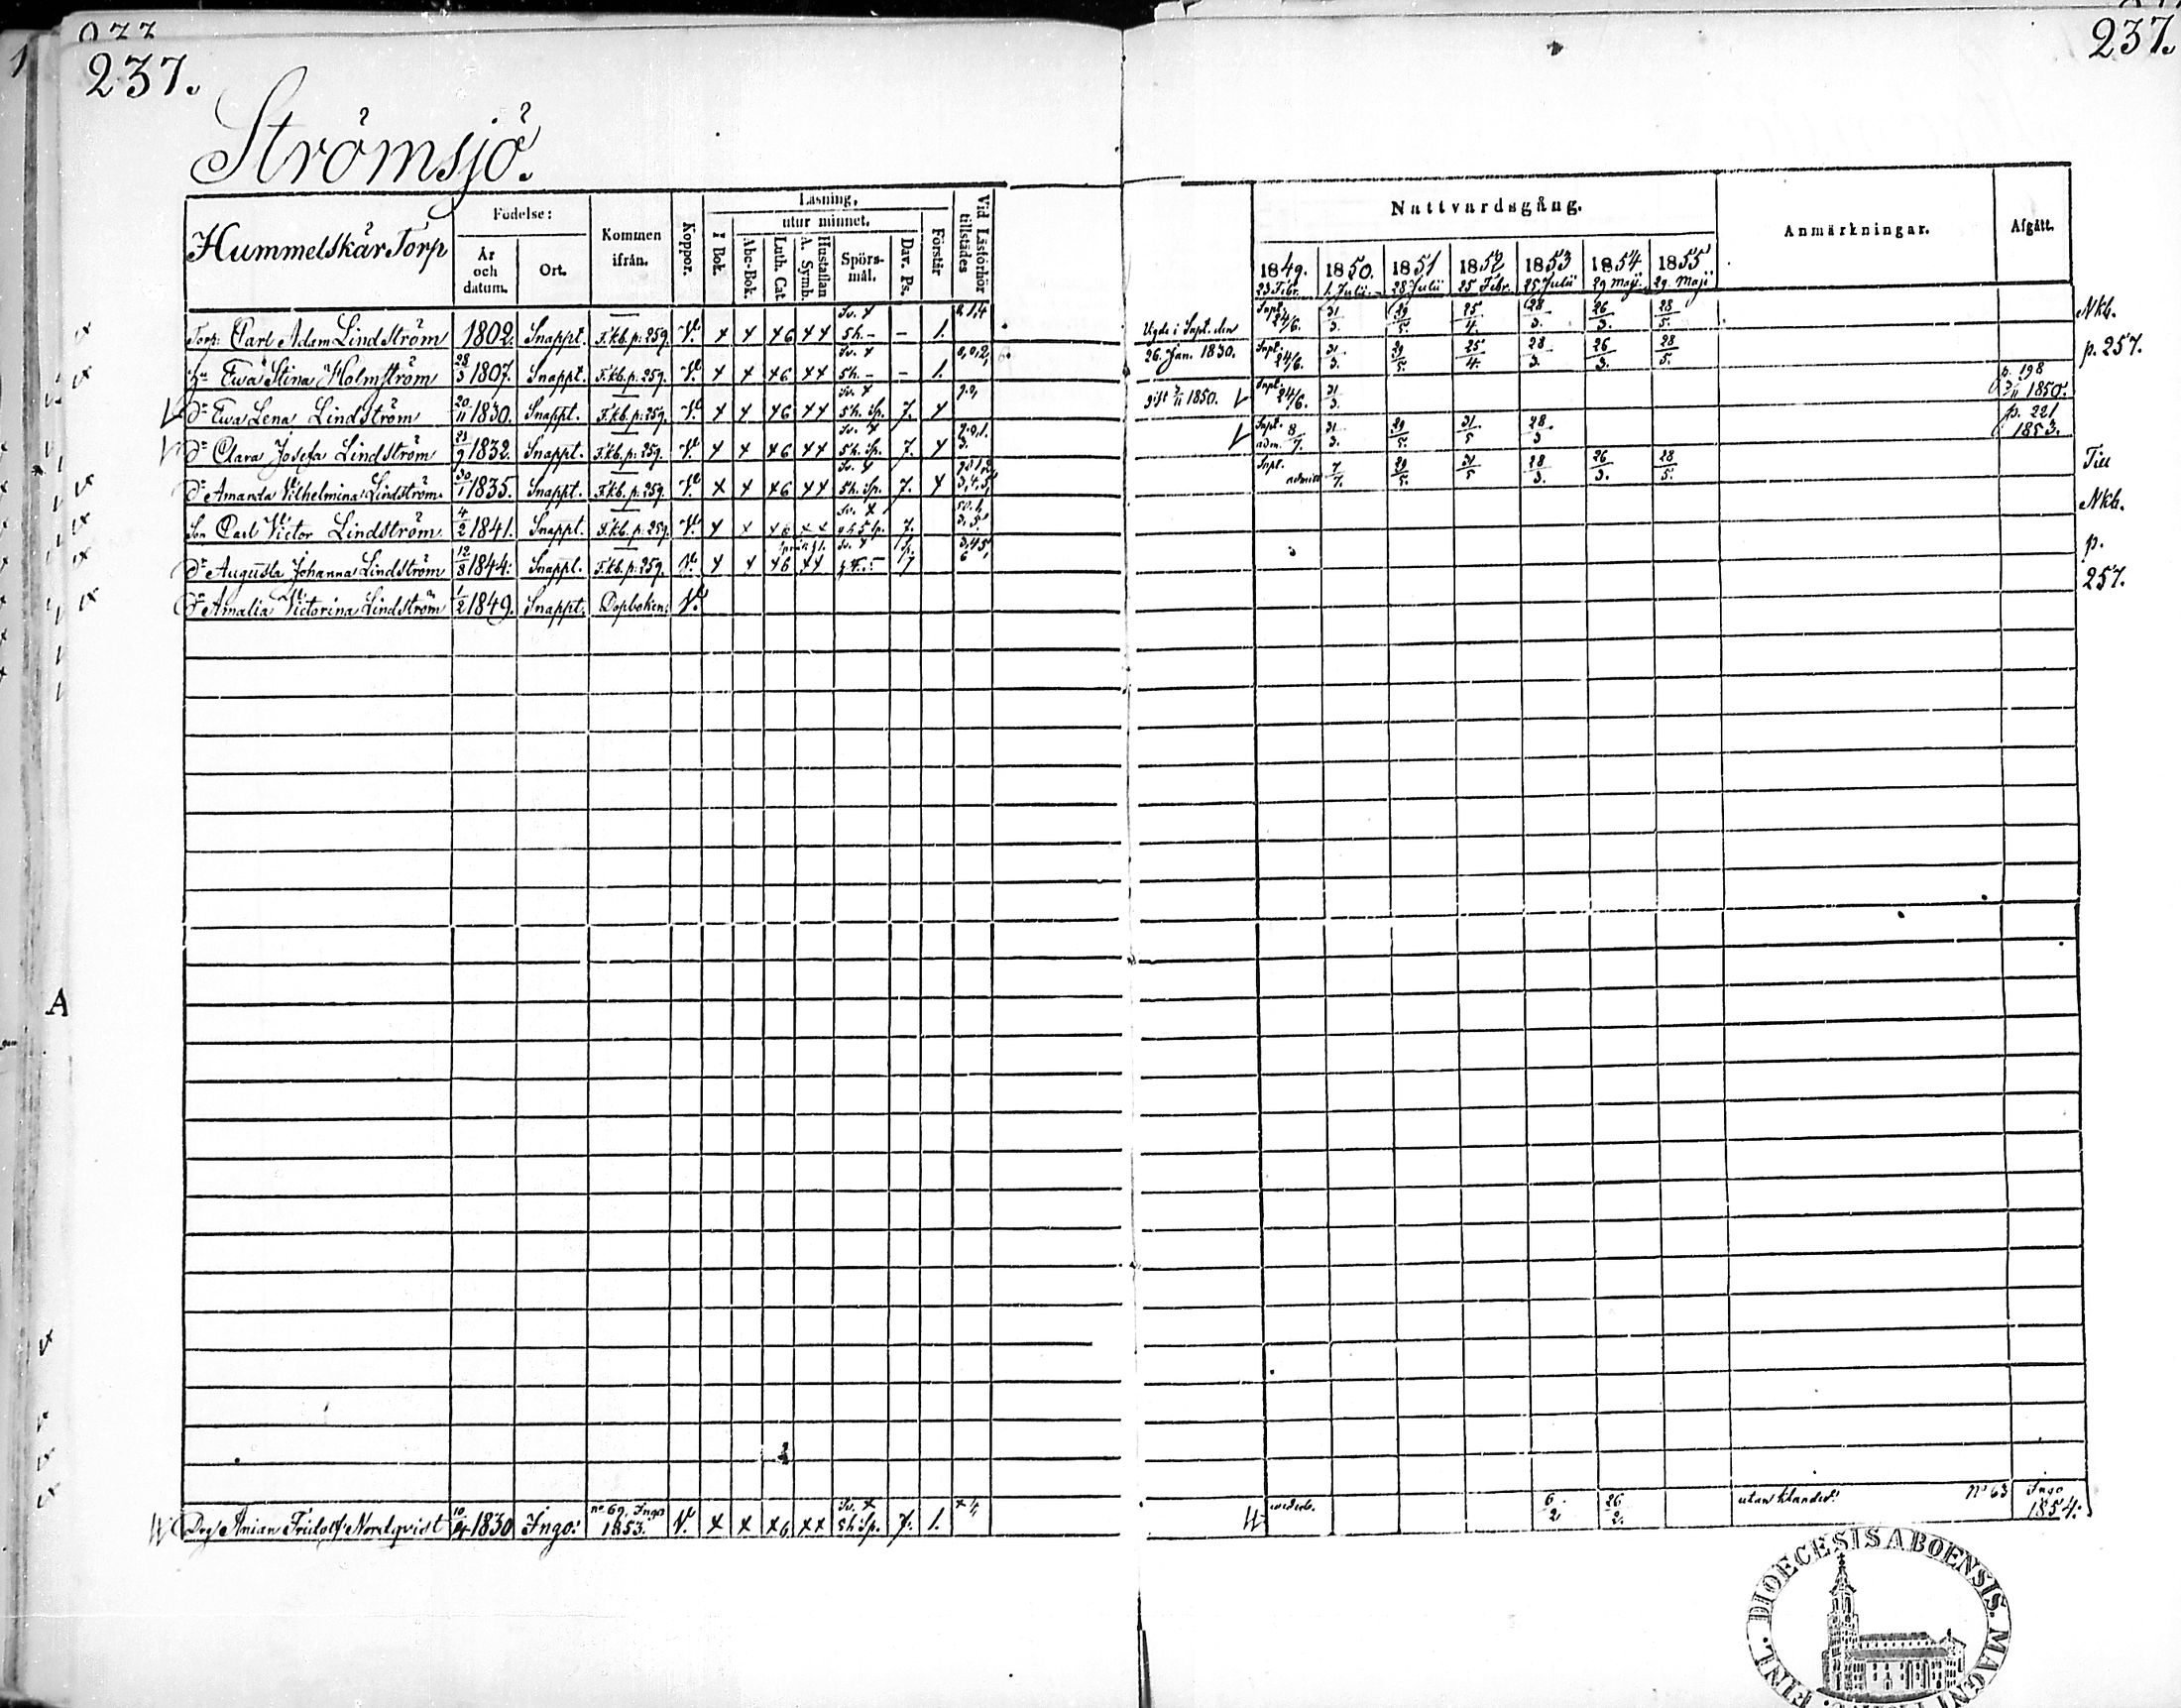 237.
237.
Strömsjö.
Hummelskär Torp
Födelse:
År och datum.
Ort.
Kommen ifrån.
Koppor.
Läsning,
I Bok.
utur minnet.
Abc-Bok.
Luth. Cat.
Hustaflan A. Symb.
Spörs-mål.
Dav. Ps.
Förstår
Vid Läsförhör tillstädes
Nattvardsgång.
1849. 1850. 1851 1852 1853 1854 1855
23 Febr. 1. Julii. 28 Julii 25 Febr. 25 Julii 29 Maji. 29. Maji
Anmärkningar.
Afgått.
Torp: Carl Adam Lindström 1802. Snappt. F.kb. p: 259. V. x x x6 xx Sv. x 5h. - - 1. Vigde i Snpt. den Snpt. 24/6. 31/3. 29/5. 25/4. 28/3. 26/3. 28/5. Nkb.
Hu Ewa Stina Holmström 28/3 1807. Snappt. F.kb. p. 259. V. x x x6 xx Sv. x 5h. - - 1. 26. Jan. 1830. Snpt. 24/6. 31/3. 29/5. 25/4. 28/3. 26/3. 28/5. p. 257.
Dr Ewa Lena Lindström 20/11 1830. Snappt. F.kb. p: 259. V. x x x6 xx Sv. x 5h. Sp. 7. x gift 3/11 1850. Snpt. 24/6. 31/3. p. 198 3/11 1850.
Dr Clara Josefa Lindström 21/9 1832. Snappt. F.kb. p: 259. V. x x x6 xx Sv. x 5h. Sp. 7. x Snpt. adm. 8/7. 31/3. 29/5. 31/5 28/3 p. 221 1853.
Dr Amanda Wilhelmina Lindström 30/1 1835. Snappt. F.kb. p: 259. V. x x x6 xx Sv. x 5h. Sp. 7. x Snpt. admitt 7/7. 29/5. 31/5 28/3. 26/3. 28/5. Till
Son Carl Victor Lindström 4/2 1841. Snappt. F.kb. p: 259. V. x x x6 xx Sv. x 7. Nkb.
Dr Augusta Johanna Lindström 12/8 1844: Snappt. F.kb. p: 259. V. x x x6 xx Sv. x 7 p.
Dr Amalia Victorina Lindström 1/2 1849. Snappt. Dopboken. V. 257.
A
Drg: Arian Fridolf Nordqvist 10/4 1830 Ingo: no 69. Ingo 1853. V. x x x6 xx Sv. x 5h Sp. 7. 1. 6/2 26/2. utan klander. No 63 Ingo 1854.
DIOECESIS ABOENSIS. MAGNI
FINL.